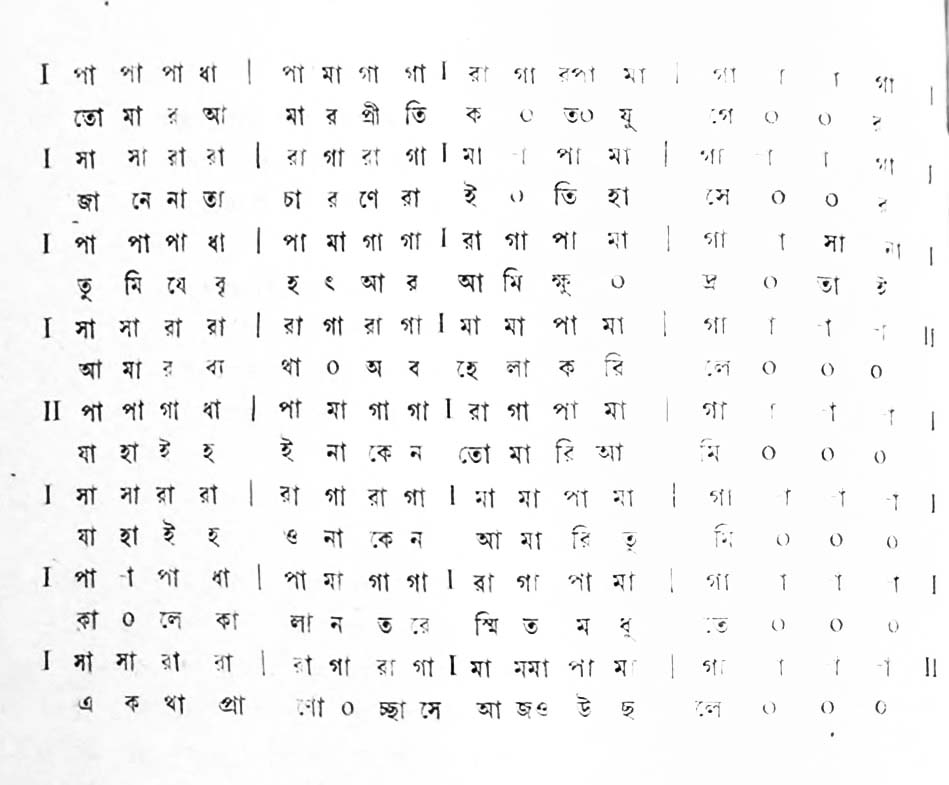 I পা পা পা ধা | পা মা গা গা I রা গা রপা মা | গা া া গা |
তো মা র আ মা র প্রী তি ক ০ ত০ যু গে ০ ০ র
I সা সা রা রা | রা গা রা গা I মা -া পা মা | গা -া া গা |
জা নে না তা চা র ণে রা ই ০ তি হা সে ০ ০ র
I পা পা পা ধা | পা মা গা গা I রা গা পা মা | গা া সা না |
তু মি যে বৃ হ ৎ আ র আ মি ক্ষু ০ দ্র ০ তা ই
I সা সা রা রা | রা গা রা গা I মা মা পা মা | গা া -া -া II
আ মা র ব্য থা ০ অ ব হে লা ক রি লে ০ ০ ০
II পা পা গা ধা | পা মা গা গা I রা গা পা মা | গা া -া -া |
যা হা ই হ ই না কে ন তো মা রি আ মি ০ ০ ০
I সা সা রা রা | রা গা রা গা I মা মা পা মা | গা -া -া -া |
যা হা ই হ ও না কে ন আ মা রি তু মি ০ ০ ০
I পা -া পা ধা | পা মা গা গা I রা গা পা মা | গা া া -া |
কা ০ লে কা লা ন ত রে স্মি ত ম ধু তে ০ ০ ০
I সা সা রা রা | রা গা রা গা I মা মমা পা মা | গা া া -া II
এ ক থা প্রা ণো ০ চ্ছা সে আ জও উ ছ লে ০ ০ ০